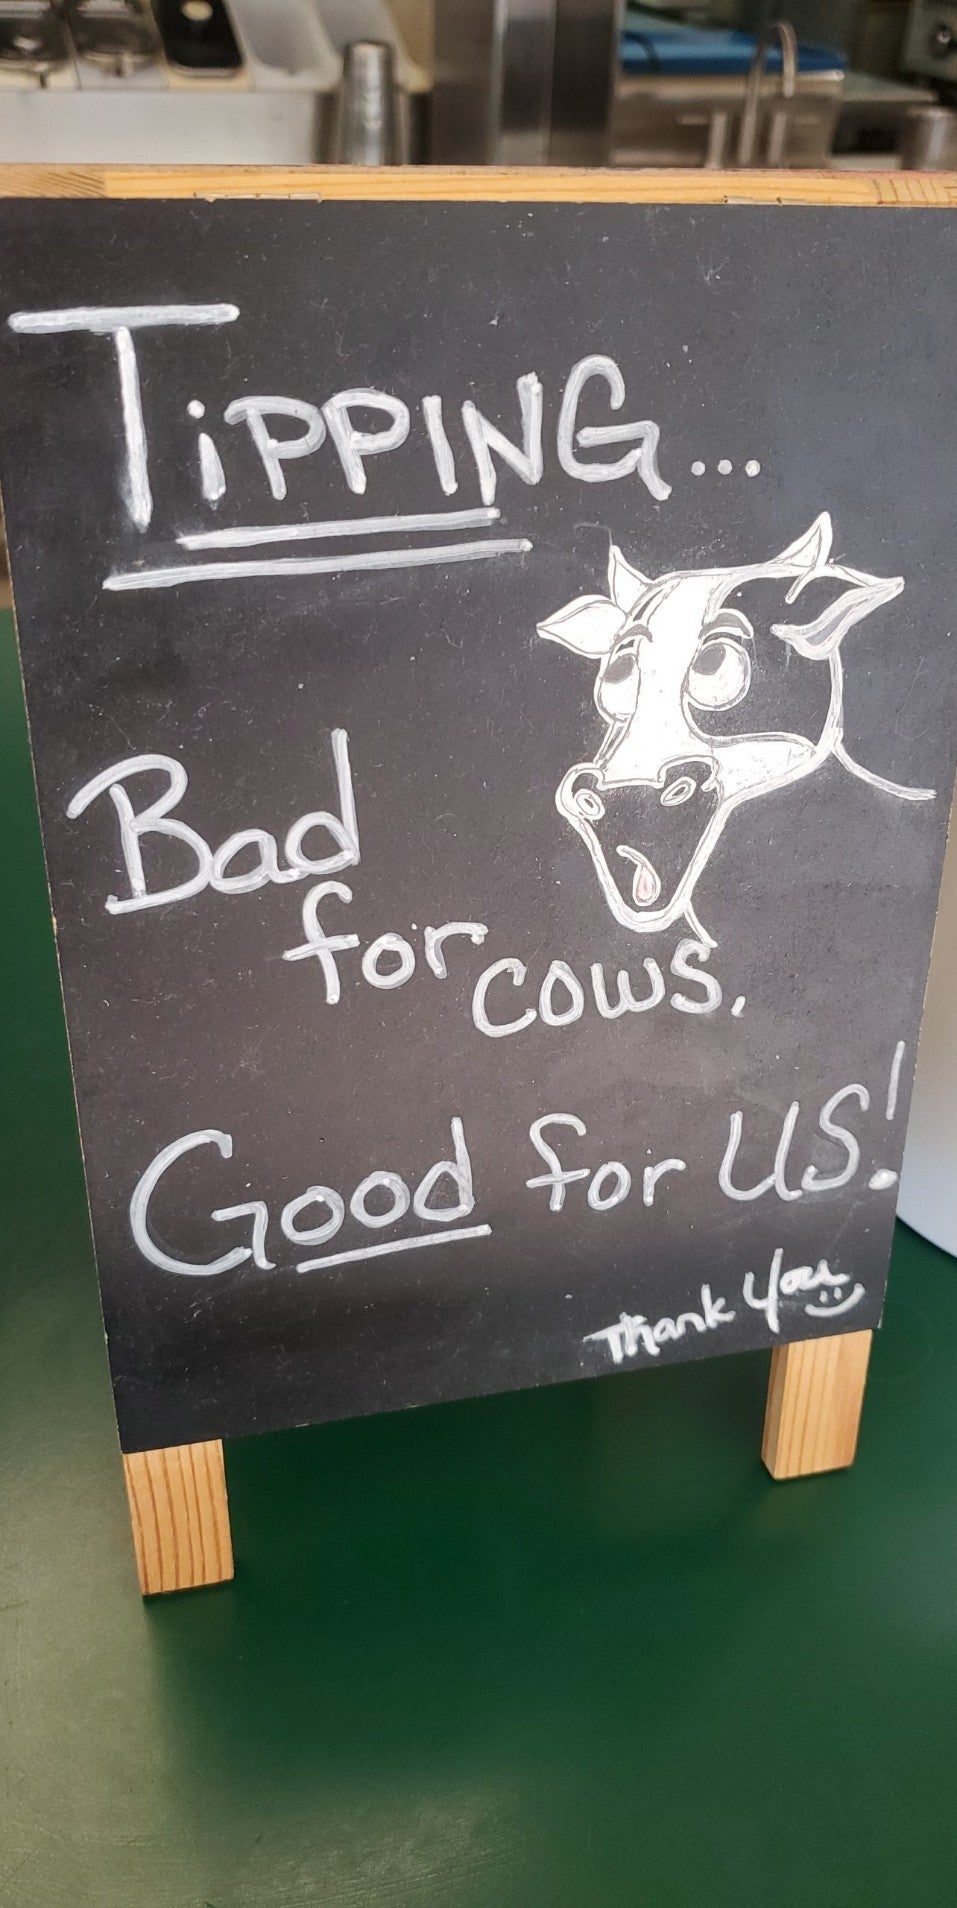 TiPPING...
Bad
for cows.
Good for US!
Thank You